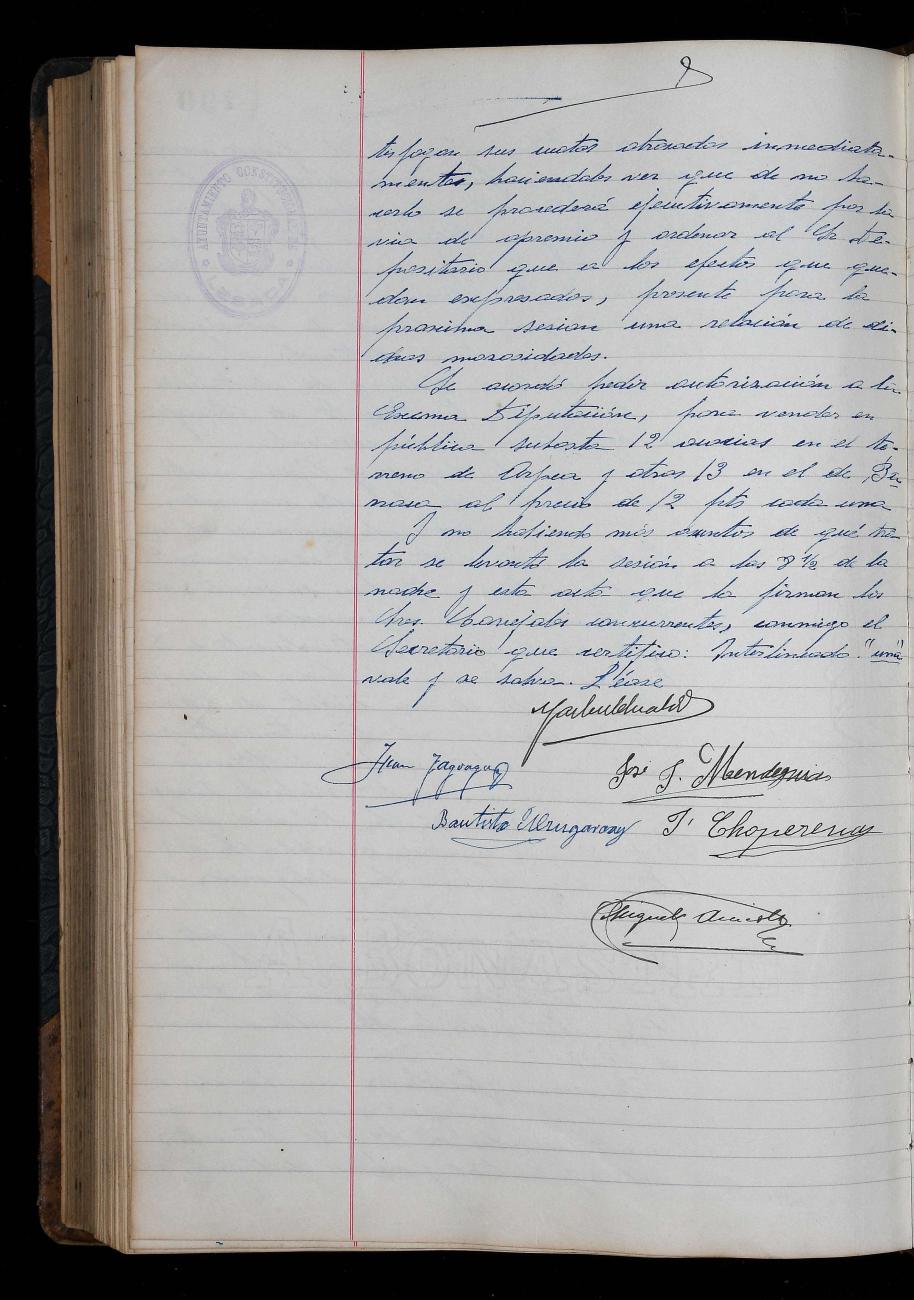 tisfagan sus cuotas atrasadas inmediata-
mente, haciendoles ver que de no ha-
cerlo se procederá ejecutivamente por la
via de apremio y ordenar al Sr De-
positario que a los efectos que que-
dan expresados, presente para la
proxima sesion una relación de di-
chas morosidades.
Se acordó pedir autorización a la
Excma Diputación, para vender en
pública subasta 12 acacias en el te-
rreno de Arpea y otras 13 en el de
al precio de 12 pts cada una
Y no habiendo más asuntos de qué tra-
tar se levantó la sesión a las 8 ½ de la
noche y esta acta que la firman los
Sres. Concejales concurrentes, conmigo el
Secretario que certifico: Interlineado "una"
vale y se salva. Léase
José J. Mendeguia
Juan
Bautista J. Choperena
AYUNTAMIENTO CONSTITUCIONAL DE
LESACA